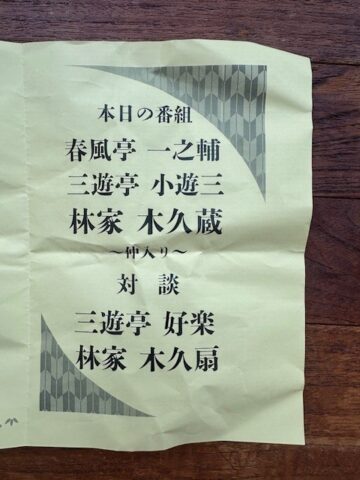 本日の番組
春風亭 一之輔
三遊亭 小遊三
林家 木久蔵
〜仲入り〜
対 談
三遊亭 好楽
林家 木久扇